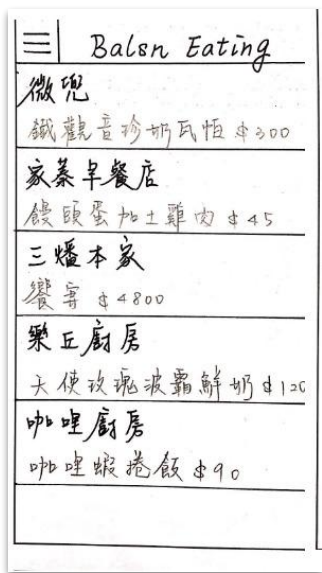 Balsn Eating
微兜
鐵觀音珍奶瓦恒 $300
家蓁早餐店
饅頭蛋加土雞肉 $45
三燔本家
饗宴 $4800
樂丘廚房
天使玫瑰波霸鮮奶 $120
咖哩廚房
咖哩蝦捲飯 $90